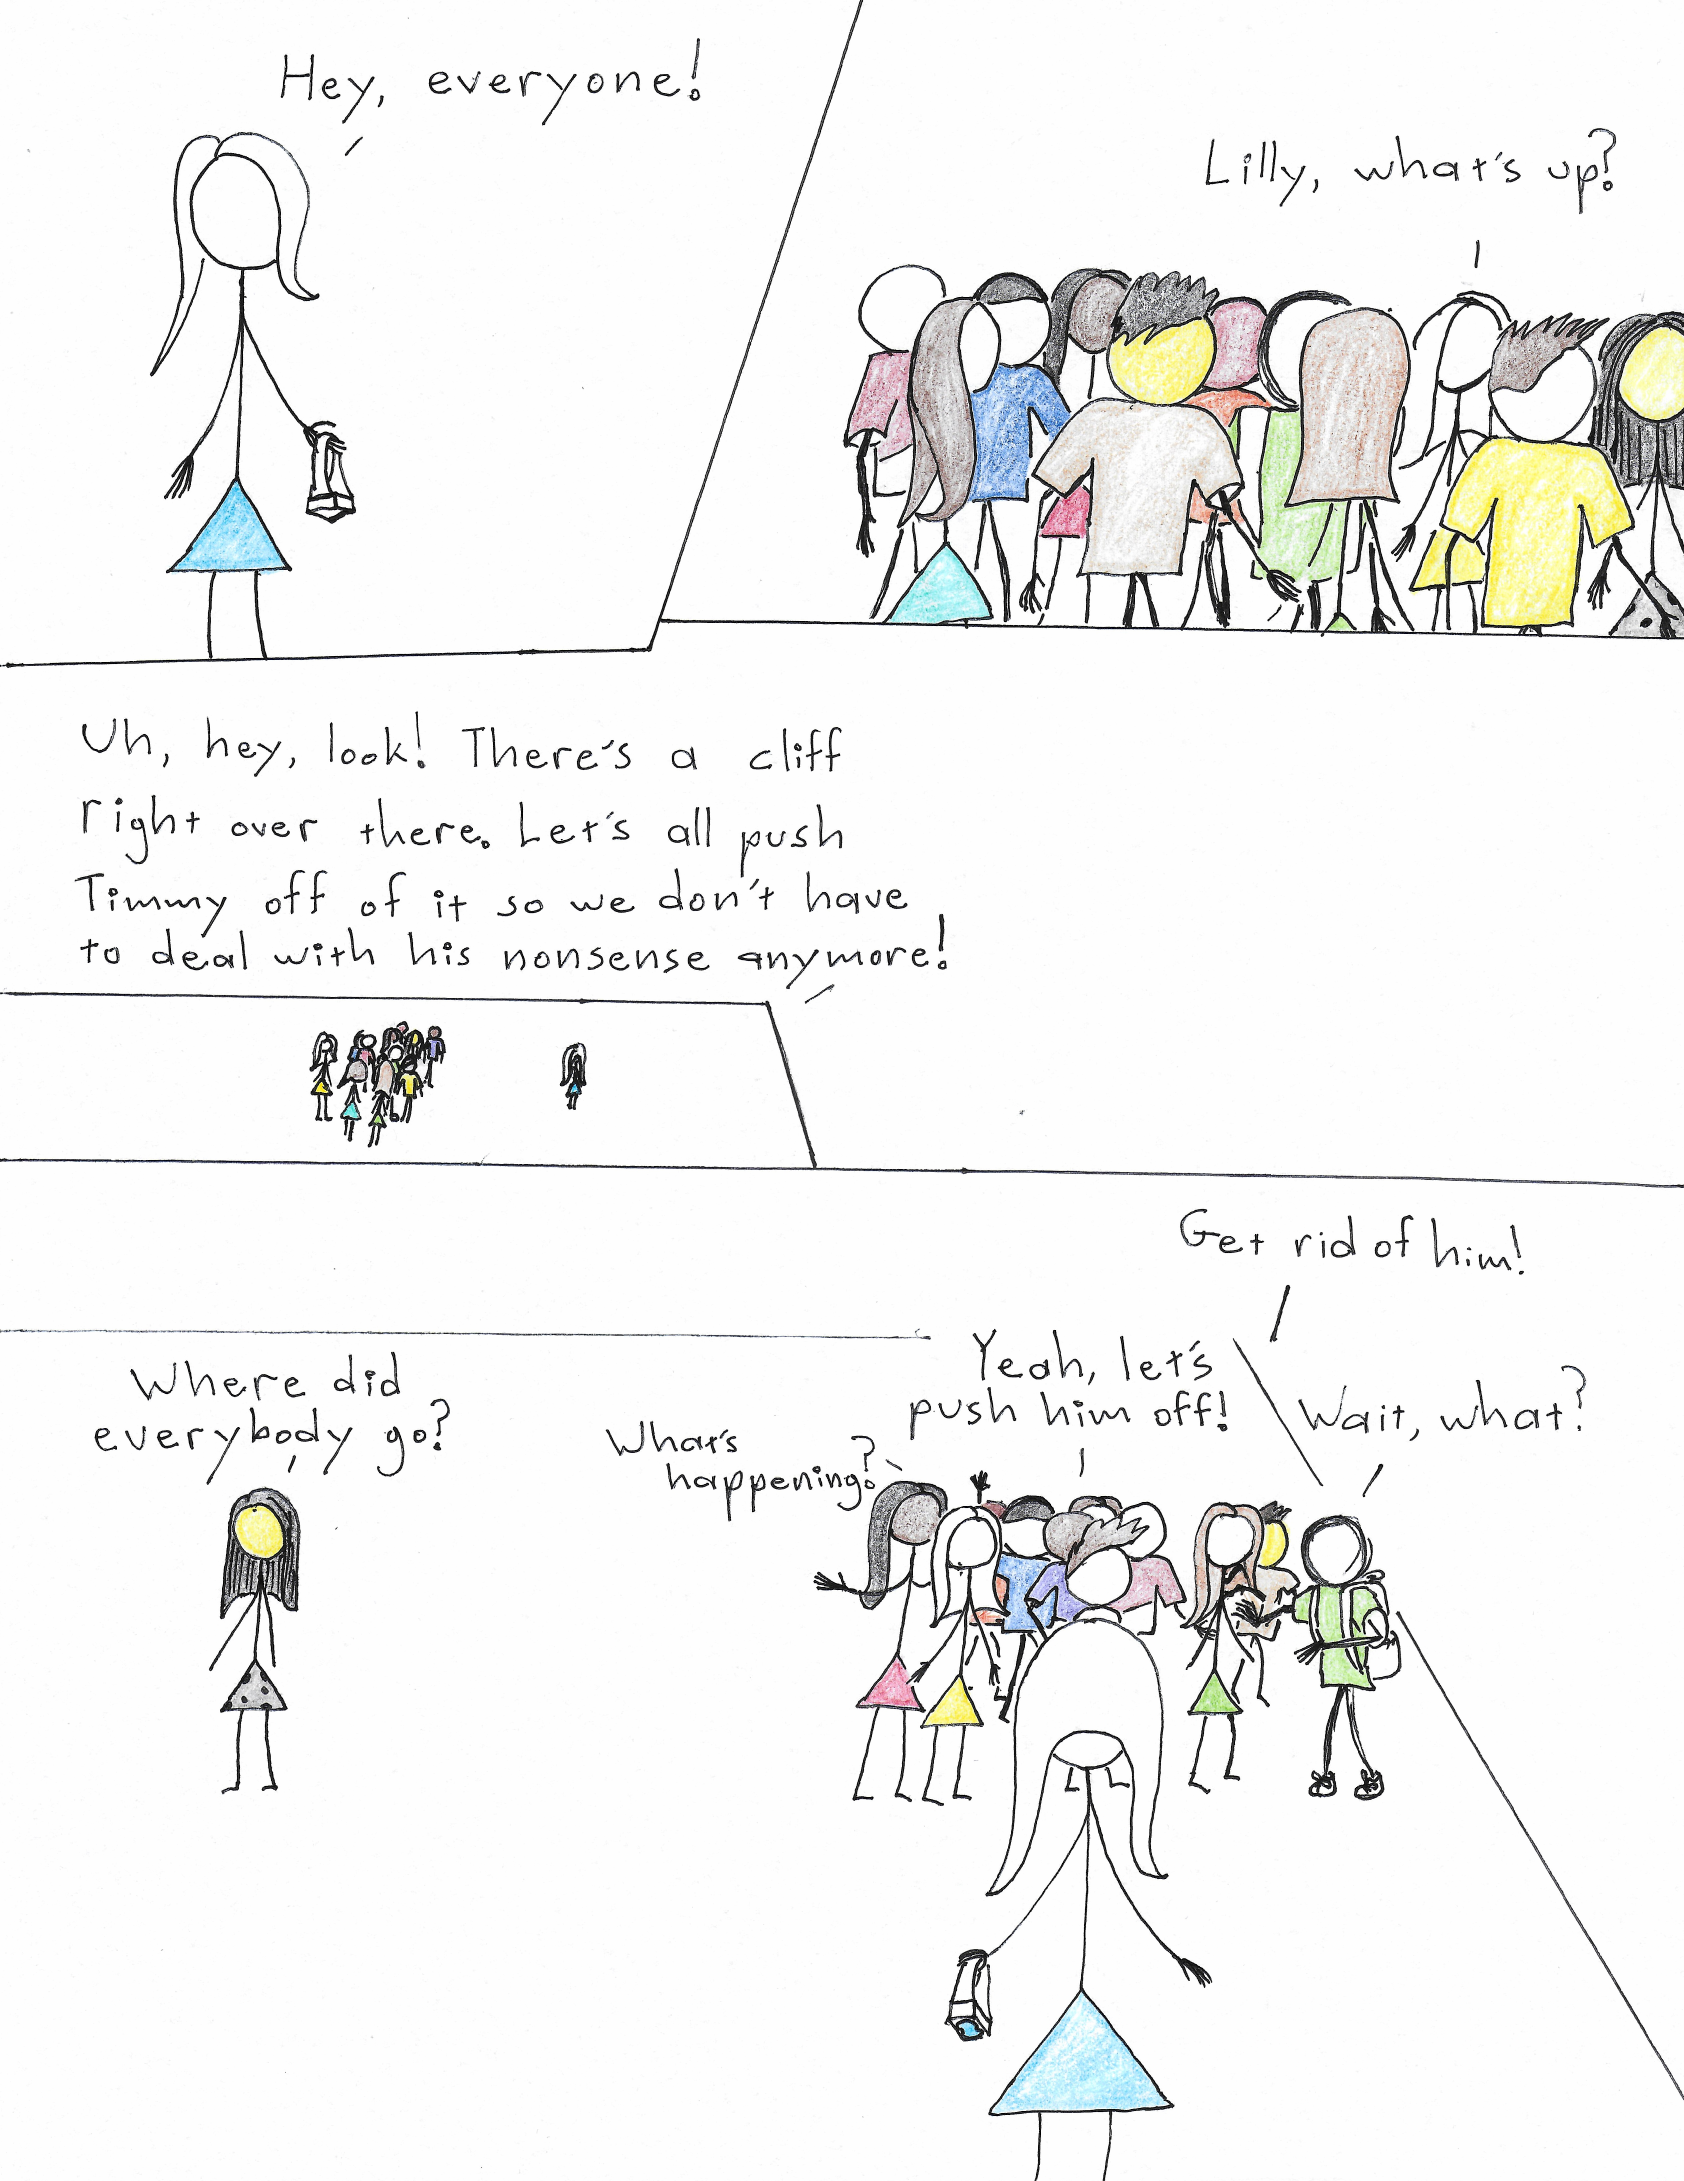 Hey, everyone!
Lilly, what's up?
Uh, hey, look! There's a cliff
right over there. Let's all push
Timmy off of it so we don't have
to deal with his nonsense anymore!
Where did
everybody go?
What's
happening?
Yeah, let's
push him off!
Get rid of him!
Wait, what?